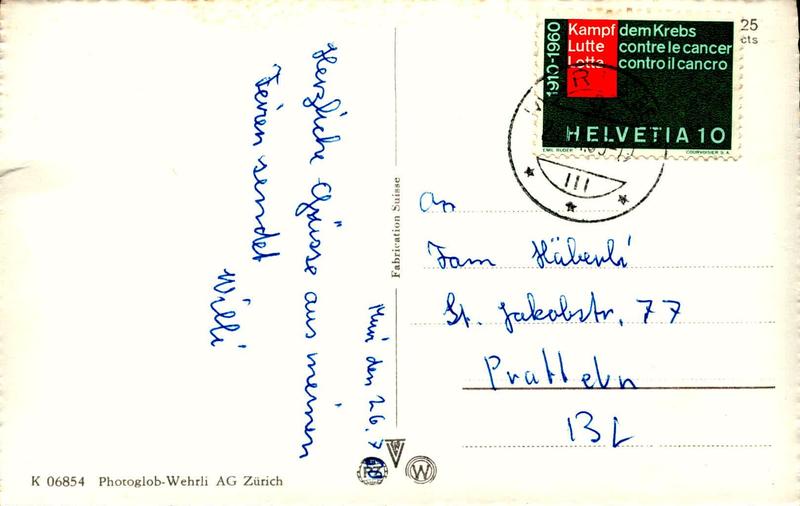 Herzliche Grüsse aus meinen
Ferien sendet
Willi
den 26.7
Fabrication Suisse
1910-1960
Kampf dem Krebs
Lutte contre le cancer
Lotta contro il cancro
HELVETIA 10
EMIL RUDER COURVOISIER S.A.
25
cts
III
An
Fam Häberli
St. Jakobstr. 77
Pratteln
BL
W
K 06854 Photoglob-Wehrli AG Zürich